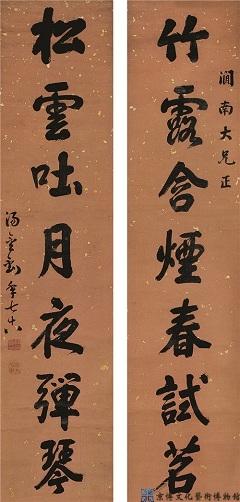 竹露含煙春試茗
澗南大兄正
松雲吐月夜彈琴
湯金釗年七十八
京傳文化藝術博物館